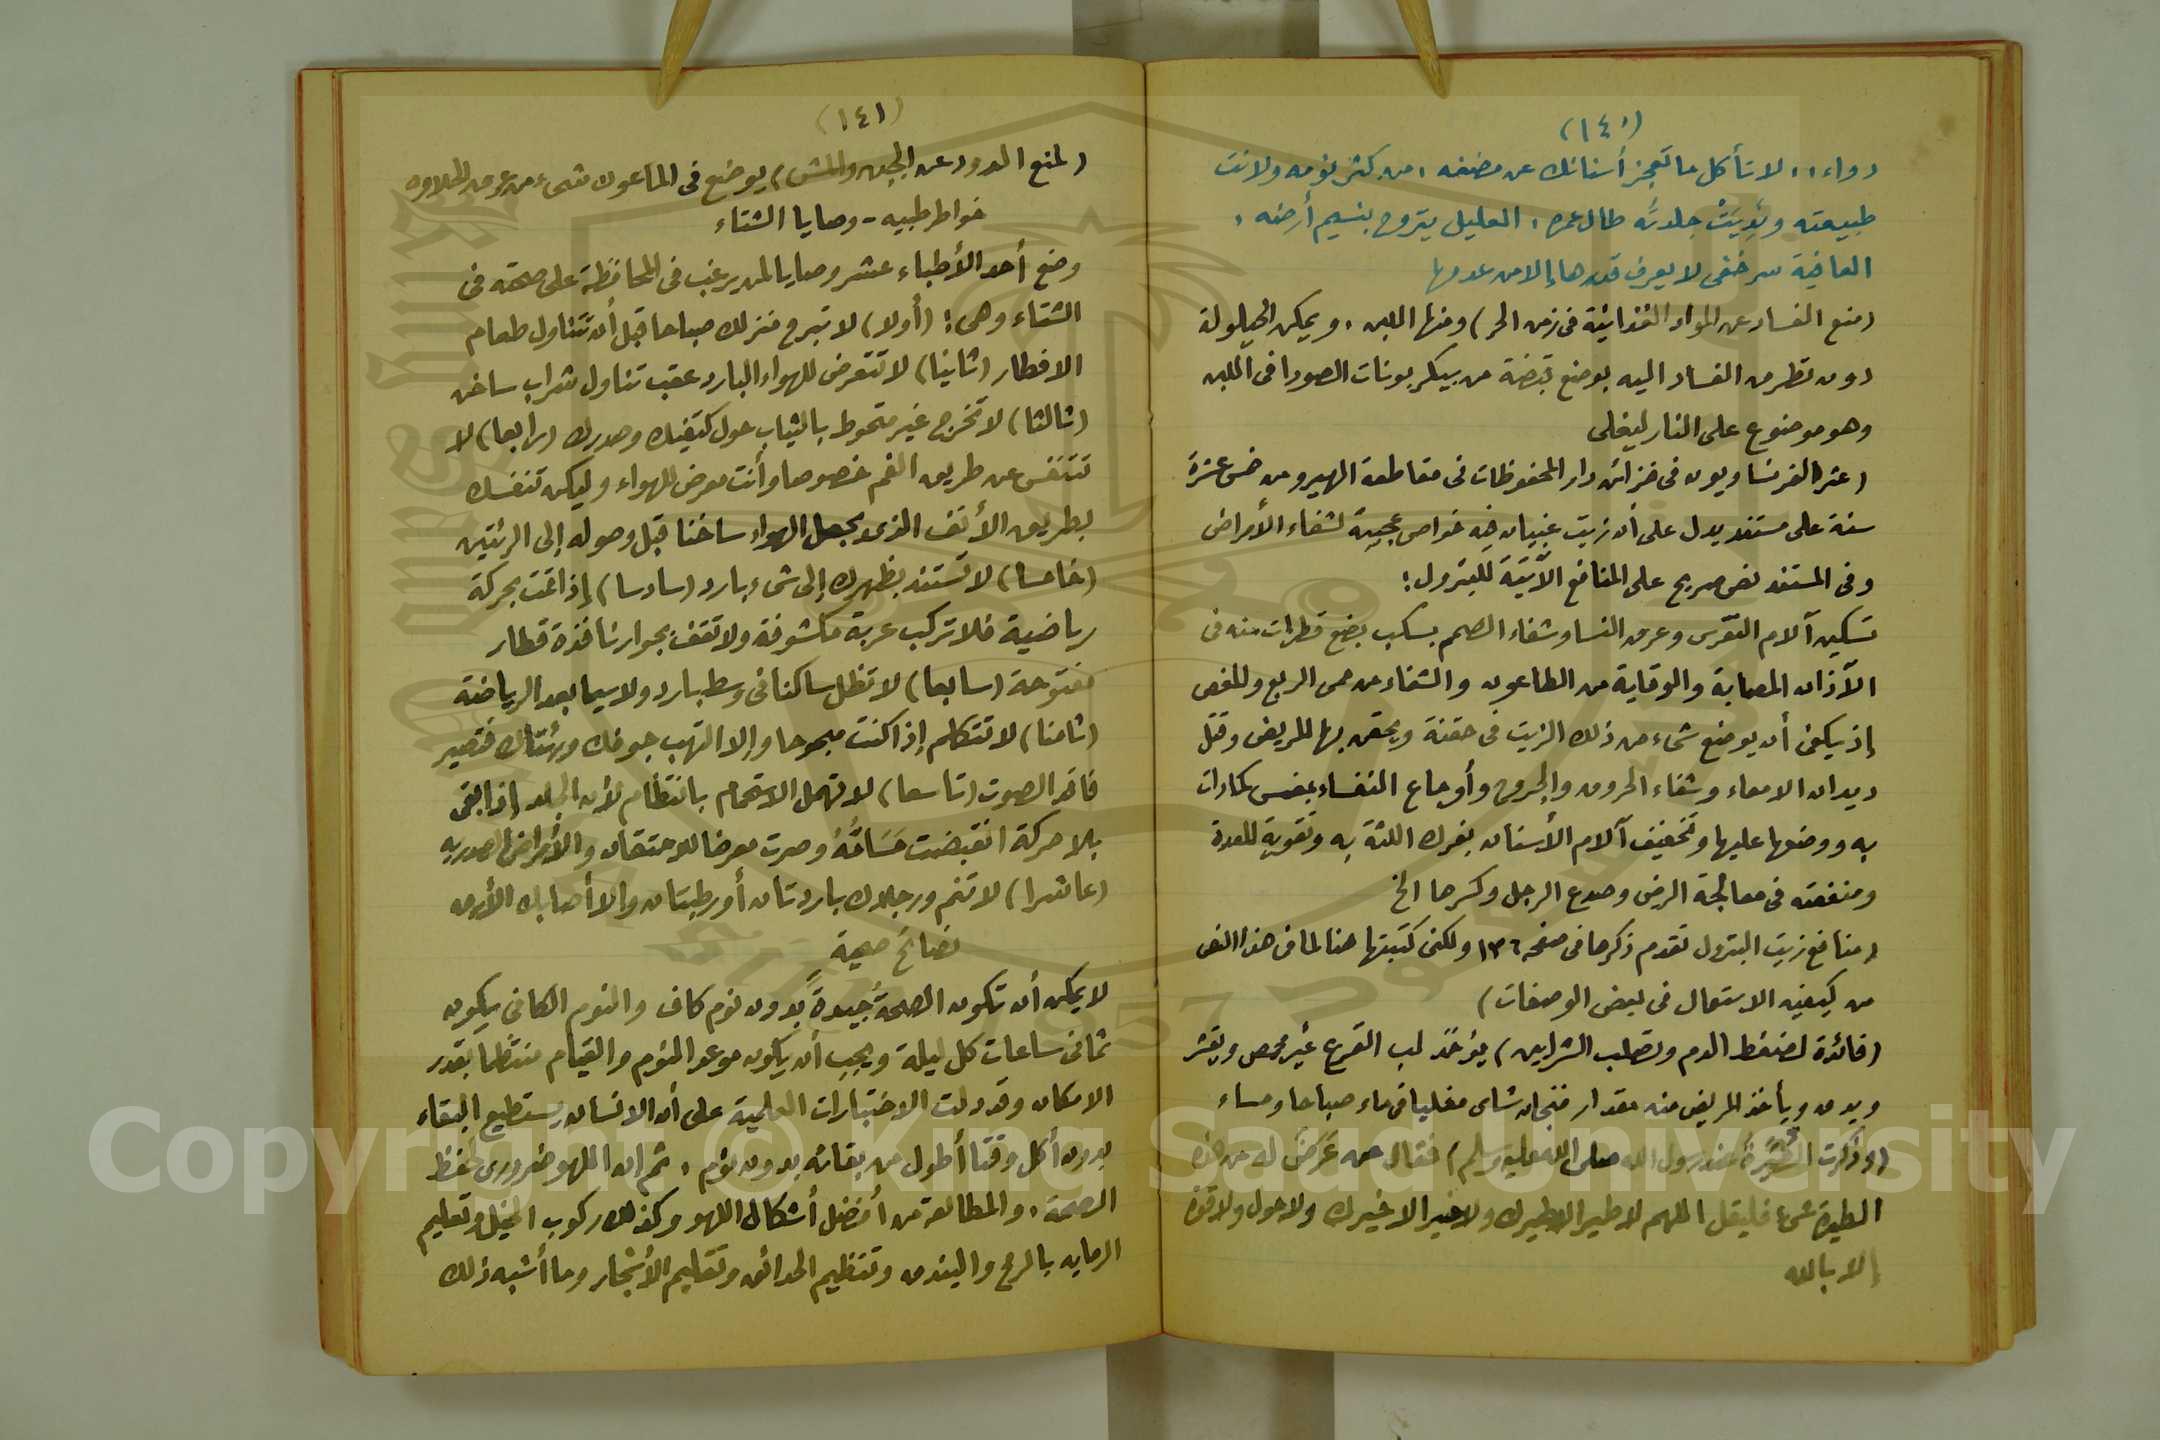 (١٤٠)
دواء، لا تأكل ما تعجز أسنانك عن مضغه، من كثر نومه ولانت
طبيعته ونديت جلدته طال عمره، العليل يتروح بنسيم أرضه،
العافية سر خفي لا يعرف قدرها إلا من عدمها
(منع الفساد عن المواد الغذائية في زمن الحر) ومنها اللبن، ويمكن الحيلولة
دون تطرق الفساد اليه بوضع قبضة من بيكربونات الصودا في اللبن
وهو موضوع على النار ليغلى
(عثر الفرنساويون في خزائن دار المحفوظات في مقاطعة الهيرو من خمس عشرة
سنة على مستند يدل على أن زيت غبيان فيه خواص عجيبة لشفاء الأمراض
وفي المستند نص صريح على المنافع الآتية للبترول:
تسكين آلام النقرس وعرق النسا وشفاء الصمم بسكب بضع قطرات منه في
الآذان المصابة والوقاية من الطاعون والشفاء من حمى الربع والمغص
إذ يكفي أن يوضع شيء من ذلك الزيت في حقنة ويحقن بها المريض وقتل
ديدان الامعاء وشفاء الحروق والجروح وأوجاع النفساء بغمس كمادات
به ووضعها عليها وتخفيف آلام الأسنان بفرك اللثة به وتقوية المعدة
ومنفعته في معالجة الرض وصدع الرجل وكسرها الخ
(منافع زيت البترول تقدم ذكرها في صفحه ١٣٦ ولكني كتبتها هنا لما في هذا النص
من كيفية الاستعمال في بعض الوصفات)
(فائدة لضغط الدم وتصلب الشرايين) يؤخذ لب القرع غير محمص ويقشر
ويدق ويأخذ المريض منه مقدار فنجان شاي مغليا في ماء صباحا ومساء
(وذكرت الطيرة عند رسول الله صلى الله عليه وسلم) فقال من عرض له من هذه
الطيرة شيء فليقل اللهم لا طير الا طيرك ولا خير الا خيرك ولا حول ولا قوة
إلا بالله
(١٤١)
(لمنع الدود عن الجبن والمش) يوضع في الماعون شيء من عرق الحلاوه
خواطر طبيه - وصايا الشتاء
وضع أحد الأطباء عشر وصايا لمن يرغب في المحافظة على صحته في
الشتاء وهي: (أولا) لا تبرح منزلك صباحا قبل أن تتناول طعام
الافطار (ثانيا) لا تتعرض للهواء البارد عقب تناول شراب ساخن
(ثالثا) لا تخرج غير متحوط بالثياب حول كتفيك وصدرك (رابعا) لا
تتنفس عن طريق الفم خصوصا وأنت معرض للهواء وليكن تنفسك
بطريق الأنف الذي يجعل الهواء ساخنا قبل وصوله إلى الرئتين
(خامسا) لا تستند بظهرك إلى شيء بارد (سادسا) إذا قمت بحركة
رياضية فلا تركب عربة مكشوفة ولا تقف بجوار نافذة قطار
مفتوحة (سابعا) لا تظل ساكنا في وسط بارد ولا سيما بعد الرياضة
(ثامنا) لا تتكلم إذا كنت مبحوحا وإلا التهب جوفك ورئتاك فتصير
فاقد الصوت (تاسعا) لا تهمل الاستحمام بانتظام لأن الجلد إذا بقي
بلا حركة انقبضت مسامه وصرت معرضا للاحتقان والأمراض الصدريه
(عاشرا) لا تنم ورجلاك باردتان أو رطبتان والا أصابك الأرق
نصائح صحية
لا يمكن أن تكون الصحة جيدة بدون نوم كاف والنوم الكافي يكون
ثماني ساعات كل ليلة ويجب أن يكون موعد النوم والقيام منتظما بقدر
الامكان وقد دلت الاختبارات العلمية على أن الانسان يستطيع البقاء
بدون أكل وقتا أطول من بقائه بدون نوم، ثم ان اللهو ضروري لحفظ
الصحة، والمطالعة من أفضل أشكال اللهو وكذلك ركوب الخيل وتعليم
الرمايه بالرمح والبندق وتنظيم الحدائق وتقليم الأشجار وما أشبه ذلك
Copyright © King Saud University